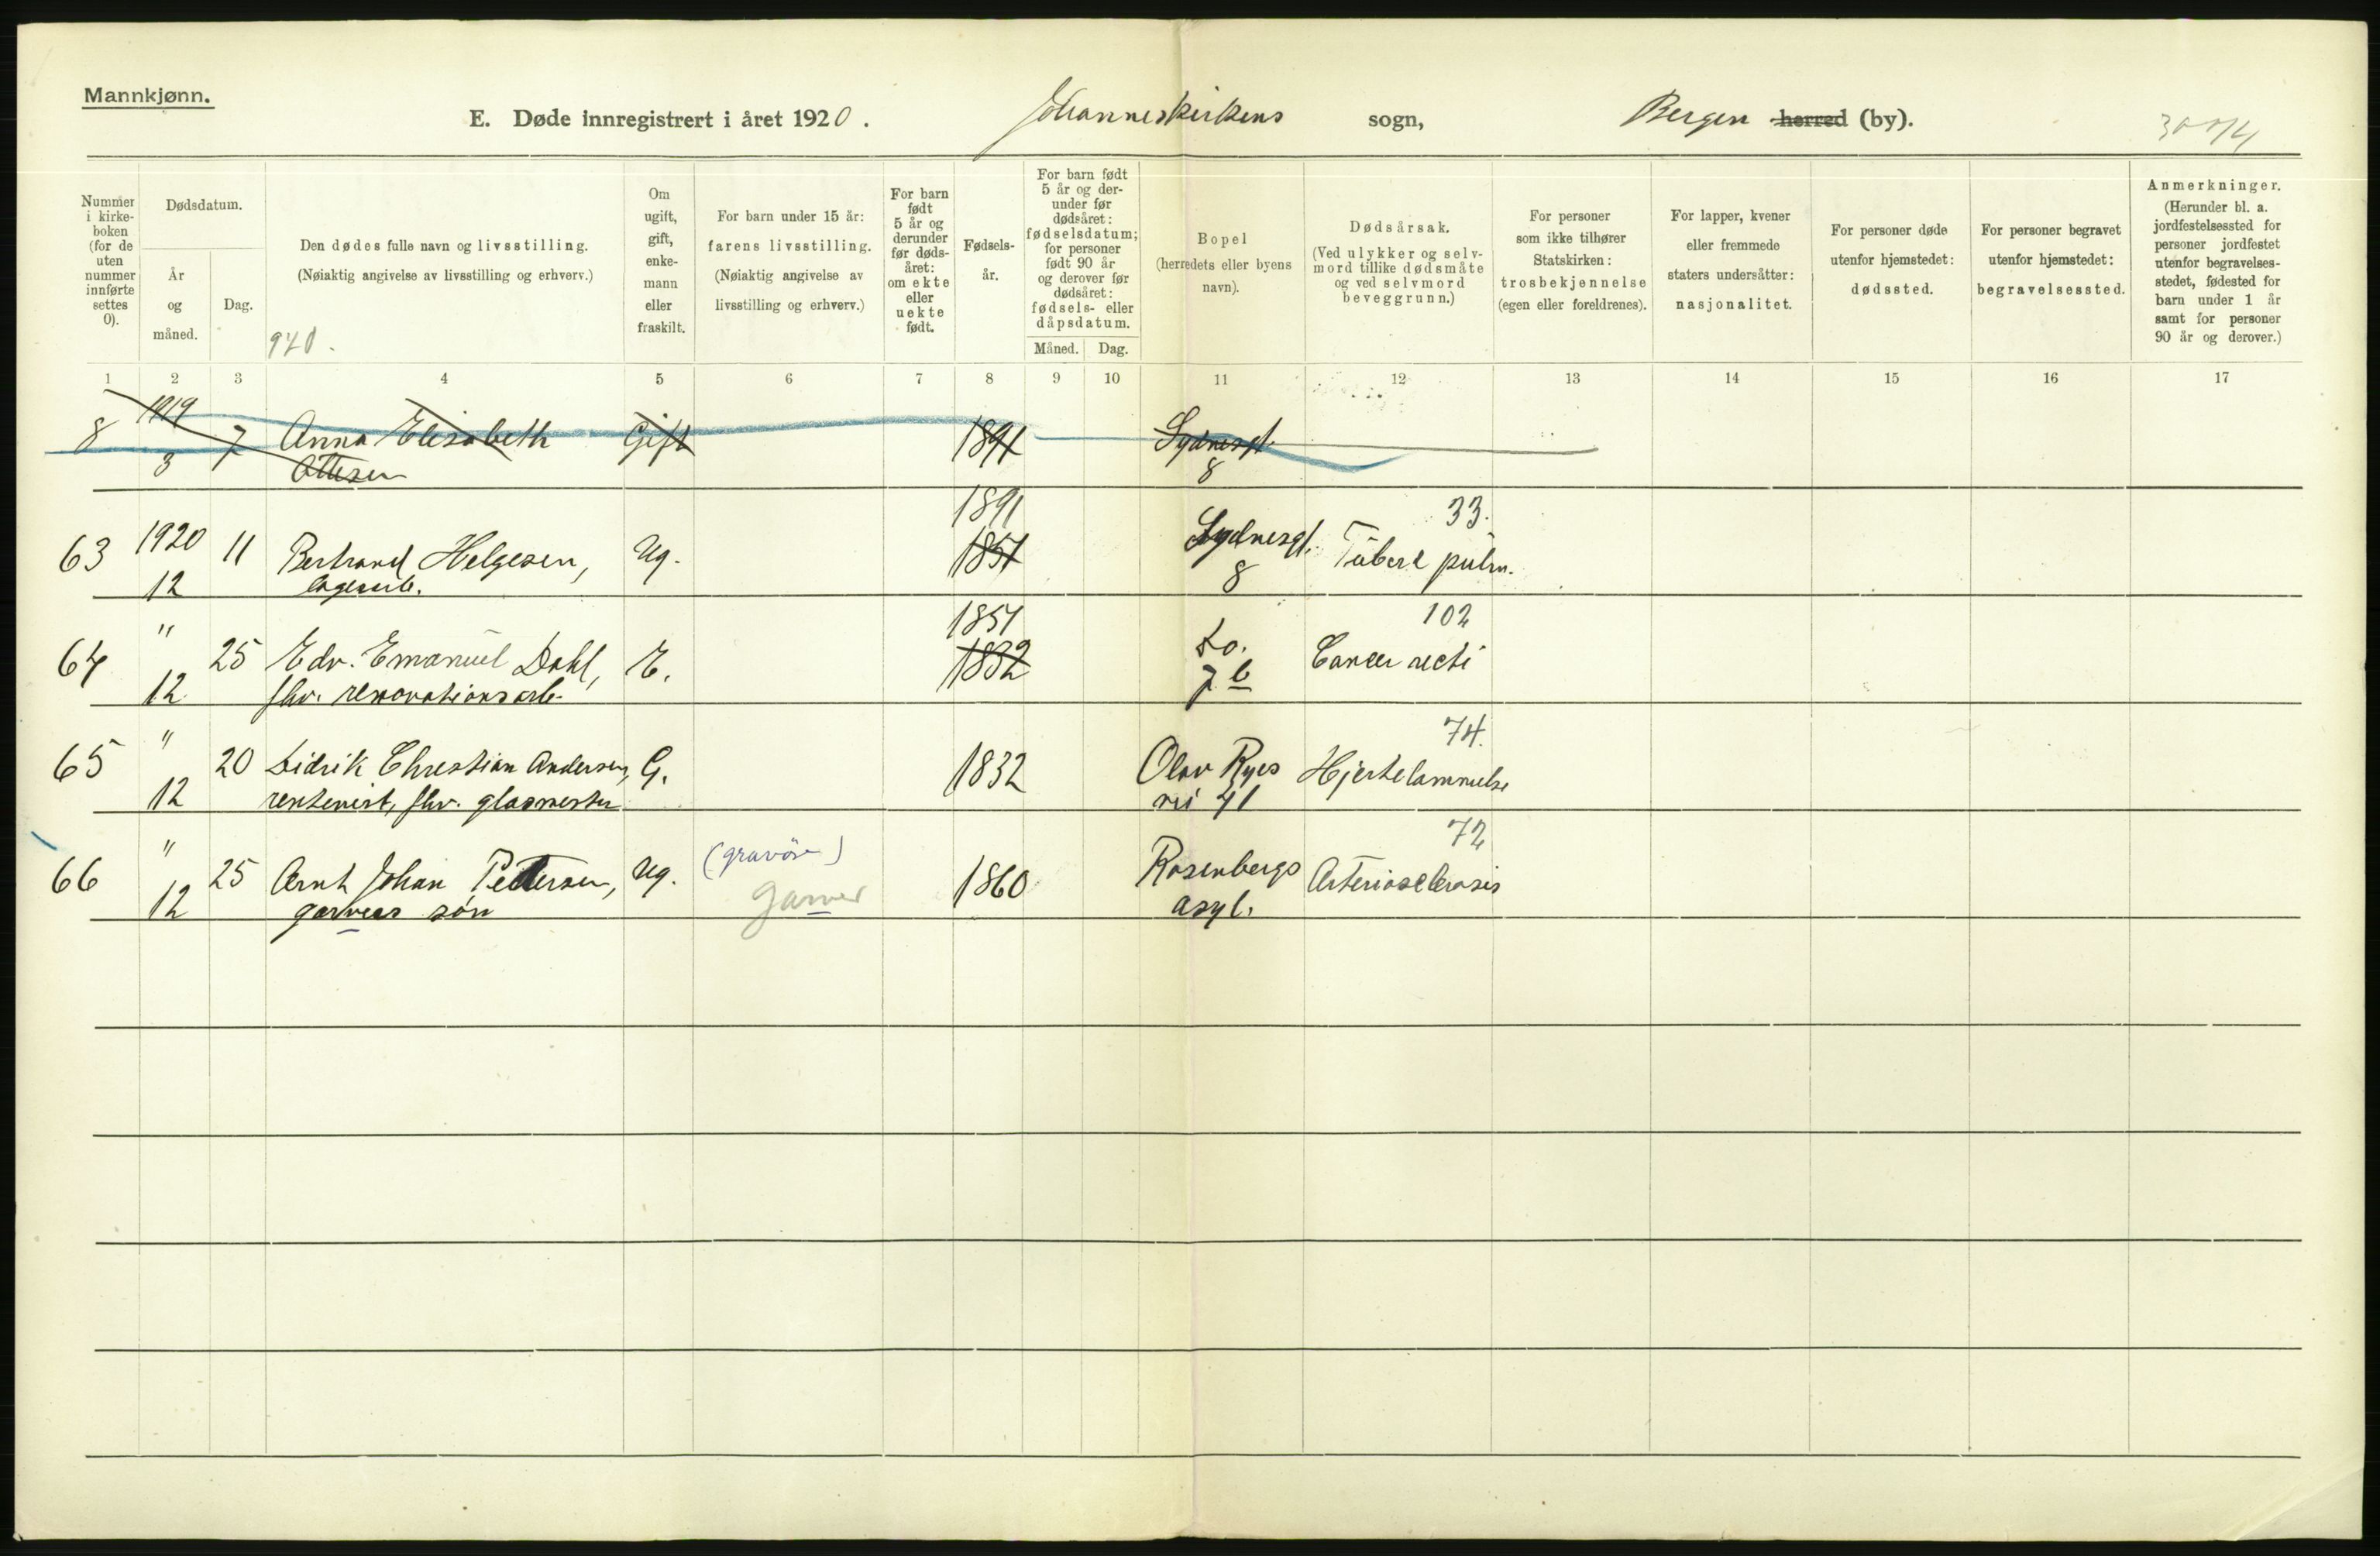 Mannkjønn.
E. Døde innregistrert i året 1920. Johanneskirkens sogn, Bergen herred (by).
Nummer i kirke-boken (for de uten nummer innførte settes 0).
Dødsdatum.
År og måned.
Dag.
Den dødes fulle navn og livsstilling.
(Nøiaktig angivelse av livsstilling og erhverv.)
940.
Om ugift, gift, enke-mann eller fraskilt.
For barn under 15 år:
farens livsstilling.
(Nøiaktig angivelse av
livsstilling og erhverv.)
For barn født 5 år og derunder før døds-året: om ekte eller uekte født.
Fødsels-år.
For barn født 5 år og der-under før dødsåret: fødselsdatum; for personer født 90 år og derover før dødsåret: fødsels- eller dåpsdatum.
Måned. Dag.
Bopel
(herredets eller byens
navn).
Dødsårsak.
(Ved ulykker og selv-mord tillike dødsmåte og ved selvmord beveggrunn.)
For personer
som ikke tilhører
Statskirken:
trosbekjennelse
(egen eller foreldrenes).
For lapper, kvener
eller fremmede
staters undersåtter:
nasjonalitet.
For personer døde
utenfor hjemstedet:
dødssted.
For personer begravet
utenfor hjemstedet:
begravelsessted.
Anmerkninger.
(Herunder bl. a.
jordfestelsessted for
personer jordfestet
utenfor begravelses-
stedet, fødested for
barn under 1 år
samt for personer
90 år og derover.)
1 2 3 4 5 6 7 8 9 10 11 12 13 14 15 16 17
8 1919 3 7 Anna Elisabeth Gift 1891 Sydnesgt.
Ottesen 8
1891 33.
63 1920 11 Bertrand Helgesen, Ug. 1851 Sydnesgt. Tuberc pulm.
12 lagerarb. 8
" 1851 102
64 25 Edv. Emanuel Dahl, E. 1832 Do. Cancer recti
12 fhv. renovationsarb. 7 b
" 74.
65 20 Didrik Christian Andersen, G. 1832 Olav Ryes Hjertelammelse
12 rentenist, fhv. glasmester vei 41
" 72
66 25 Arnt Johan Pettersen, Ug. (gravør) 1860 Rosenbergs Arteriosclerosis
12 garvers søn garver asyl.